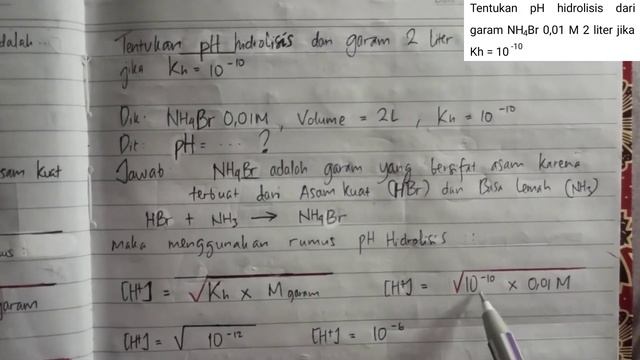 Tentukan pH hidrolisis dari
garam NH₄Br 0,01 M 2 liter jika
Kh = 10⁻¹⁰
dalah...
Tentukan pH hidrolisis dan garam 2 liter
jika Kh = 10⁻¹⁰
Dik. NH₄Br 0,01M, Volume = 2L, Kh = 10⁻¹⁰
Dit: pH = .... ?
sam kuat
Jawab NH₄Br adalah garam yang bersifat asam karena
terbuat dari Asam Kuat (HBr) dan Basa Lemah (NH₃)
HBr + NH₃ → NH₄Br
us:
Maka menggunakan rumus pH Hidrolisis :
garam
[H⁺] = √Kh × M garam [H⁺] = √10⁻¹⁰ × 0,01 M
[H⁺] = √10⁻¹² [H⁺] = 10⁻⁶